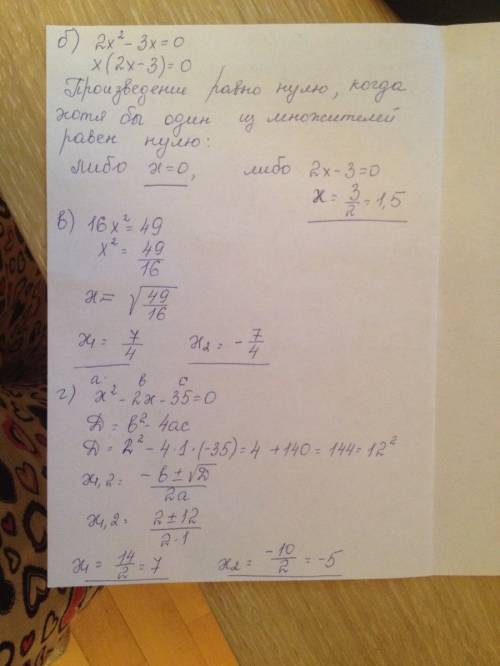 б) 2x² - 3x = 0
x(2x-3) = 0
Произведение равно нулю, когда
хотя бы один из множителей
равен нулю:
либо x=0, либо 2x-3=0
x = 3/2 = 1,5
в) 16x² = 49
x² = 49/16
x = √(49/16)
x₁ = 7/4 x₂ = -7/4
a b c
г) x² - 2x - 35 = 0
D = b² - 4ac
D = 2² - 4·1·(-35) = 4 + 140 = 144 = 12²
x₁,₂ = (-b ± √D)/2a
x₁,₂ = (2 ± 12)/(2·1)
x₁ = 14/2 = 7 x₂ = -10/2 = -5